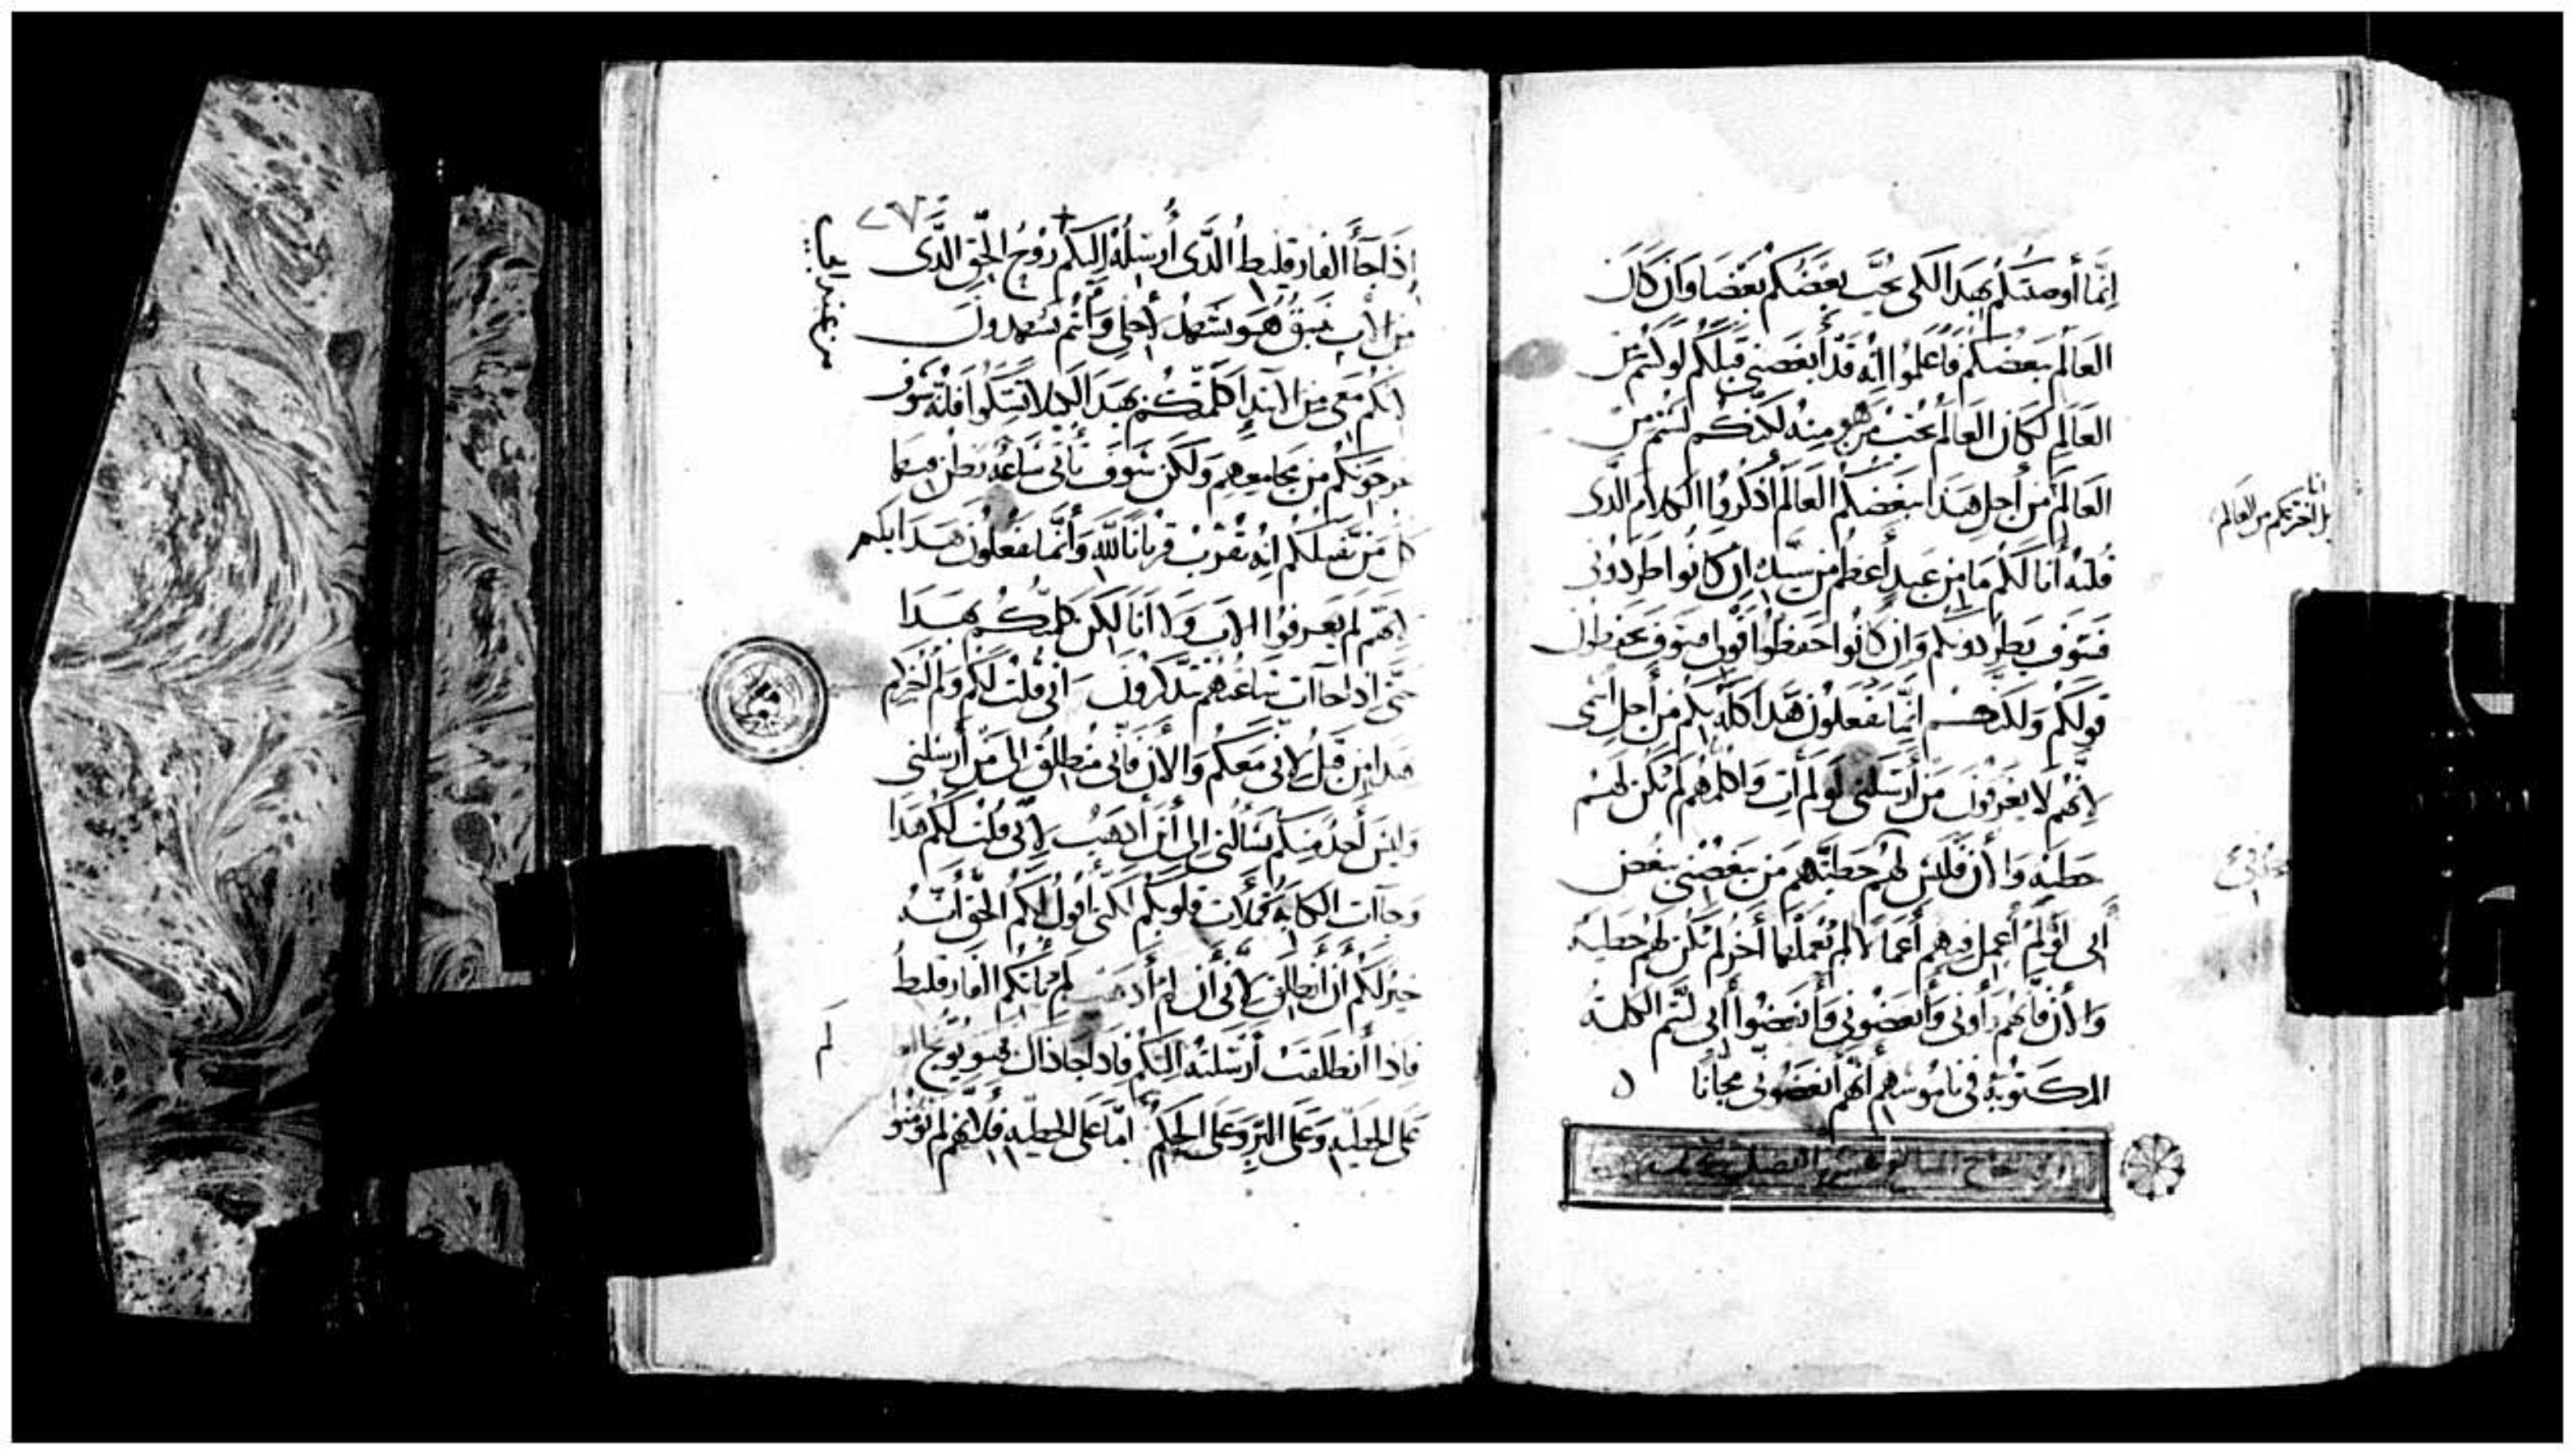 إنما أوصيتكم بهذا لكي يحب بعضكم بعضا وان كان
العالم يبغضكم فاعلموا انه قد أبغضني قبلكم لو كنتم من
العالم لكان العالم يحب من هو منه لكنكم لستم من
العالم من أجل هذا يبغضكم العالم اذكروا الكلام الذى
قلته أنا لكم ما من عبد أعظم من سيده ان كانوا طردونى
فسوف يطردونكم وان كانوا حفظوا قولى فسوف يحفظون
قولكم ولكنهم إنما يفعلون هذا كله بكم من أجل اسمى
لانهم لا يعرفون من أرسلنى لو لم أت واكلمهم لم تكن لهم
خطية والأن فليس لهم خطيتهم من يبغضنى يبغض
أبى لو لم أعمل فيهم أعمالا لم يعملها أخر لم تكن لهم خطية
والأن فانهم رأونى وأبغضونى وأبغضوا أبى لتتم الكلمة
المكتوبة فى ناموسهم أنهم أبغضونى مجانا
انا
بل اخترتكم من العالم
إذا جاء الفارقليط الذى أرسله اليكم روح الحق الذى
من الأب ينبثق هو يشهد لاجلى وأنتم تشهدون
لانكم معى من الابتدا كلمتكم بهذا لكيلا تشكوا فانه سوف
يخرجونكم من مجامعهم ولكن سوف تأتى ساعة يظن فيها
كل من يقتلكم انه يقرب قربانا لله وأنما يفعلون هذا بكم
لانهم لم يعرفوا الاب ولا انا لكن كلمتكم بهذا
حتى إذا جاات ساعتهم تتذكرون انى قلت لكم ولم أخبركم
هذا من قبل لانى معكم والأن فانى منطلق الى من أرسلنى
وليس أحد منكم يسألنى إلى أين أذهب لانى قلت لكم هذا
وجاات الكابة فملات قلوبكم لكنى أقول لكم الحق أنه
خير لكم أن أنطلق لانى أن لم أذهب لم يأتكم الفارقليط
فاذا أنطلقت أرسلته اليكم فاذا جا ذاك فهو يوبخ العالم
على الخطية وعلى البر وعلى الحكم اما على الخطية فلانهم لم يؤمنوا